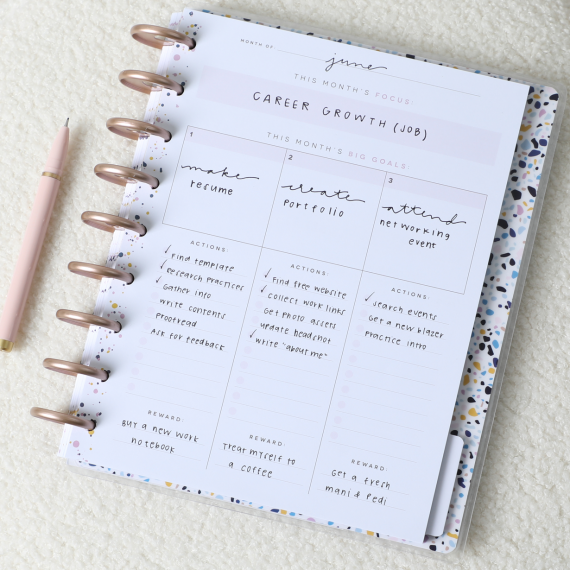 MONTH OF june
THIS MONTH'S FOCUS:
CAREER GROWTH (JOB)
THIS MONTH'S BIG GOALS:
1
make
resume
2
create
portfolio
3
attend
networking
event
ACTIONS:
✓ Find template
✓ Research practices
✓ Gather info
write contents
Proofread
Ask for feedback
REWARD:
Buy a new work
notebook
ACTIONS:
✓ Find free website
✓ collect work links
Get photo assets
update headshot
✓ write "about me"
REWARD:
Treat myself to
a coffee
ACTIONS:
✓ search events
Get a new blazer
Practice intro
REWARD:
Get a fresh
mani & pedi